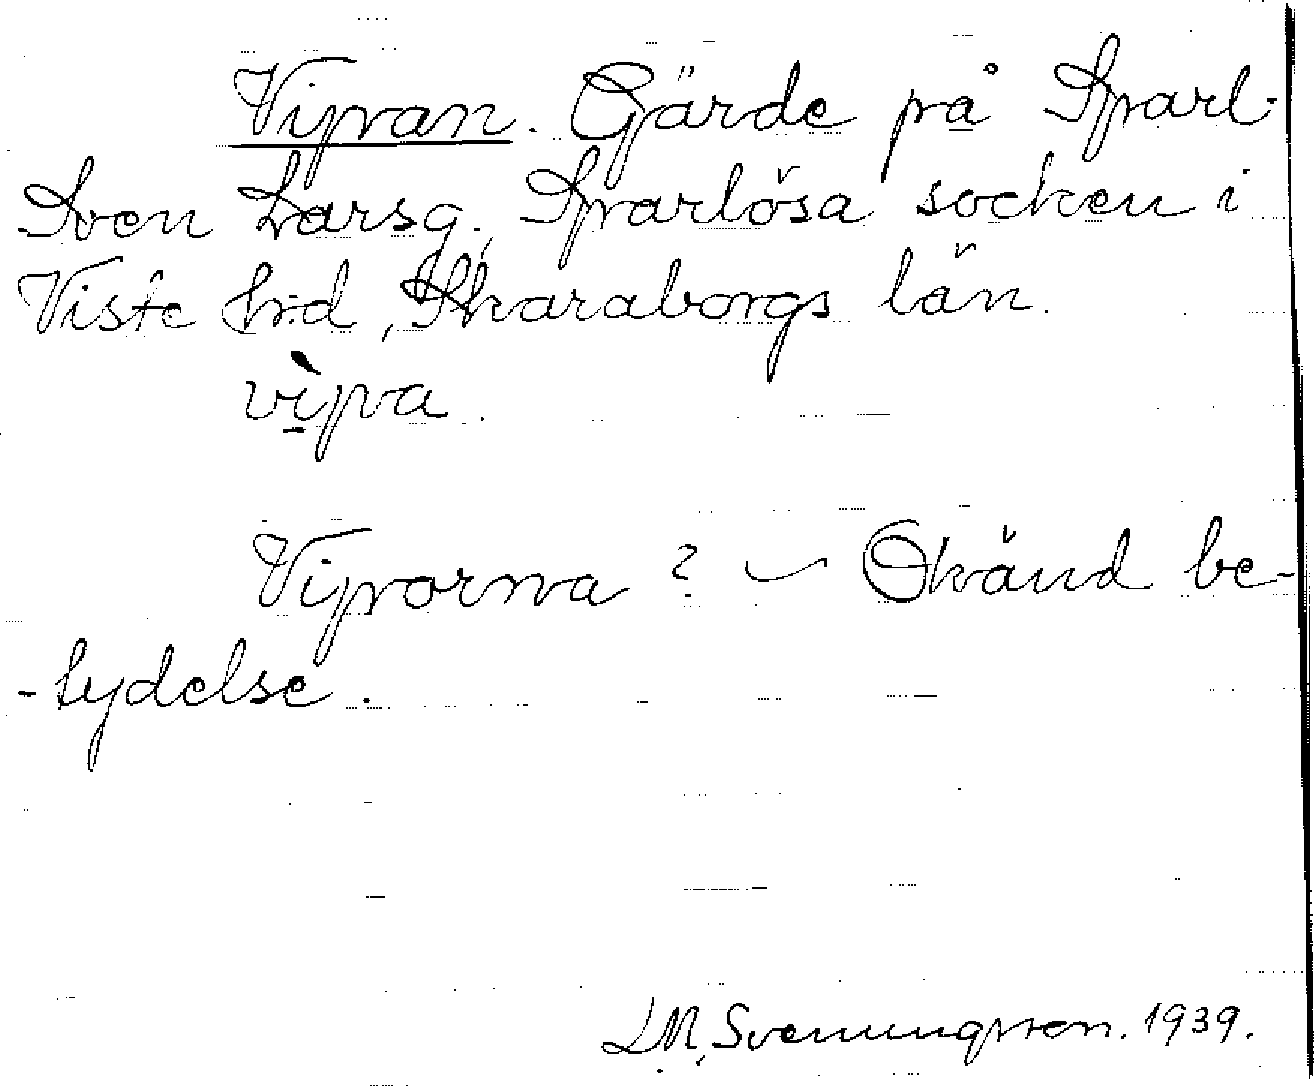 Vipan. Gärde på Sparl.
Sven Larsg., Sparlösa socken i
Viste hd, Skaraborgs län.
vı̣̀pa.
Viporna? – Okänd be-
-tydelse.
L.M. Svenungsson. 1939.